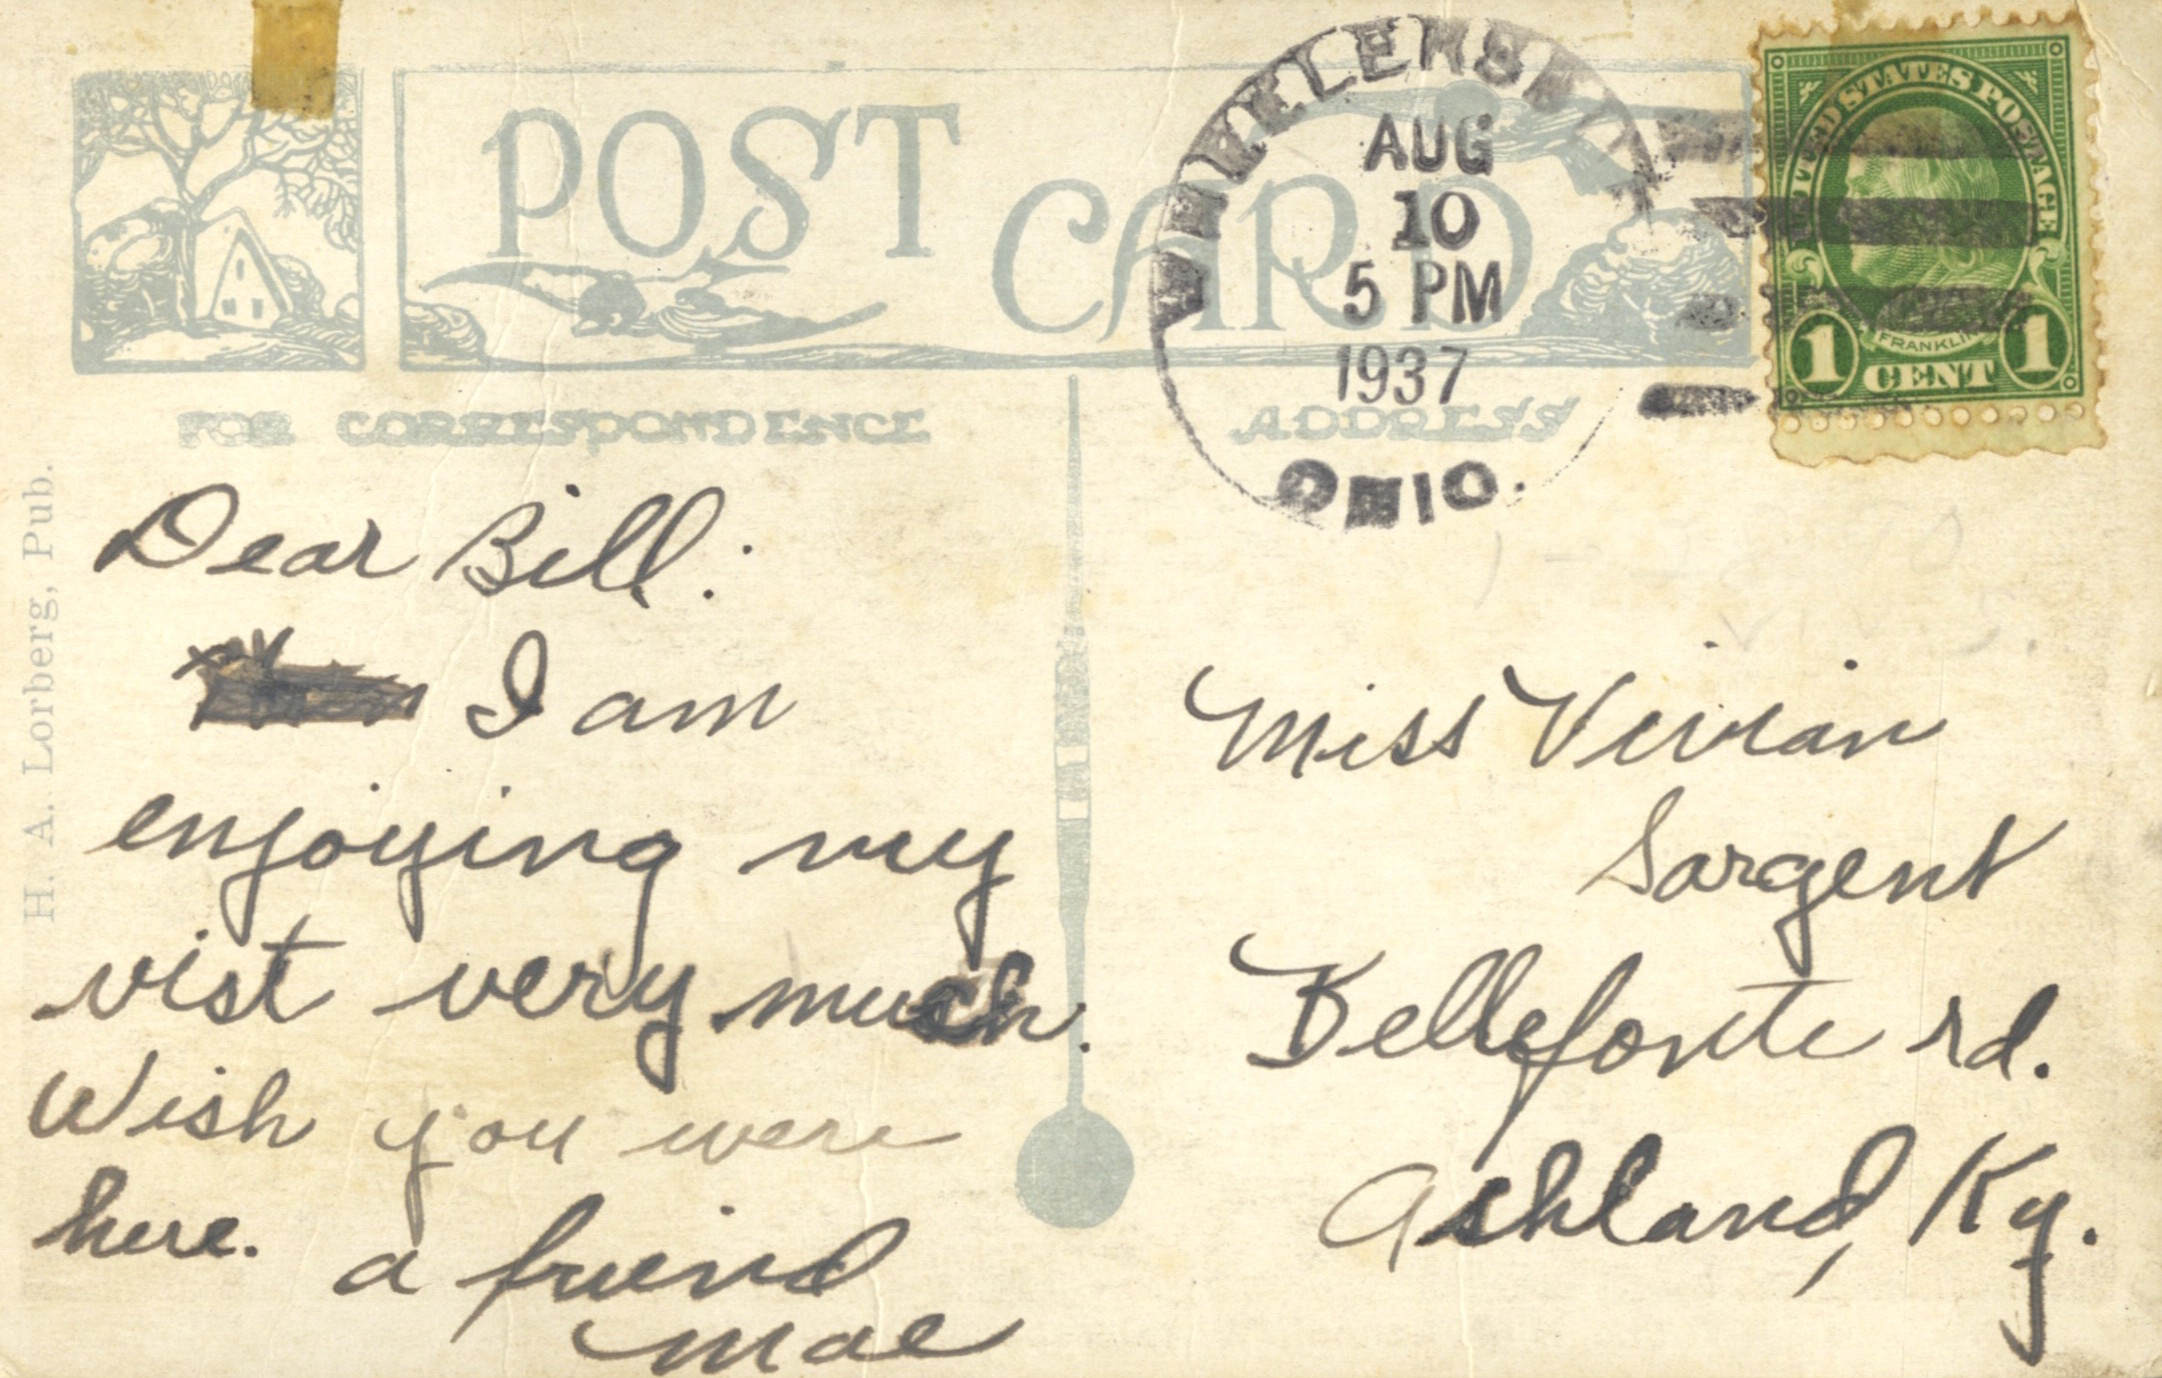 POST CARD
WHEELERSBURG
AUG
10
5 PM
1937
OHIO.
UNITED STATES POSTAGE
FRANKLIN
1 CENT 1
FOR CORRESPONDENCE
ADDRESS
H. A. Lorberg, Pub.
Dear Bill:
I am
enjoying my
vist very much.
Wish you were
here.
a friend
Mae
Miss Vivian
Sargent
Bellefonte rd.
Ashland, Ky.